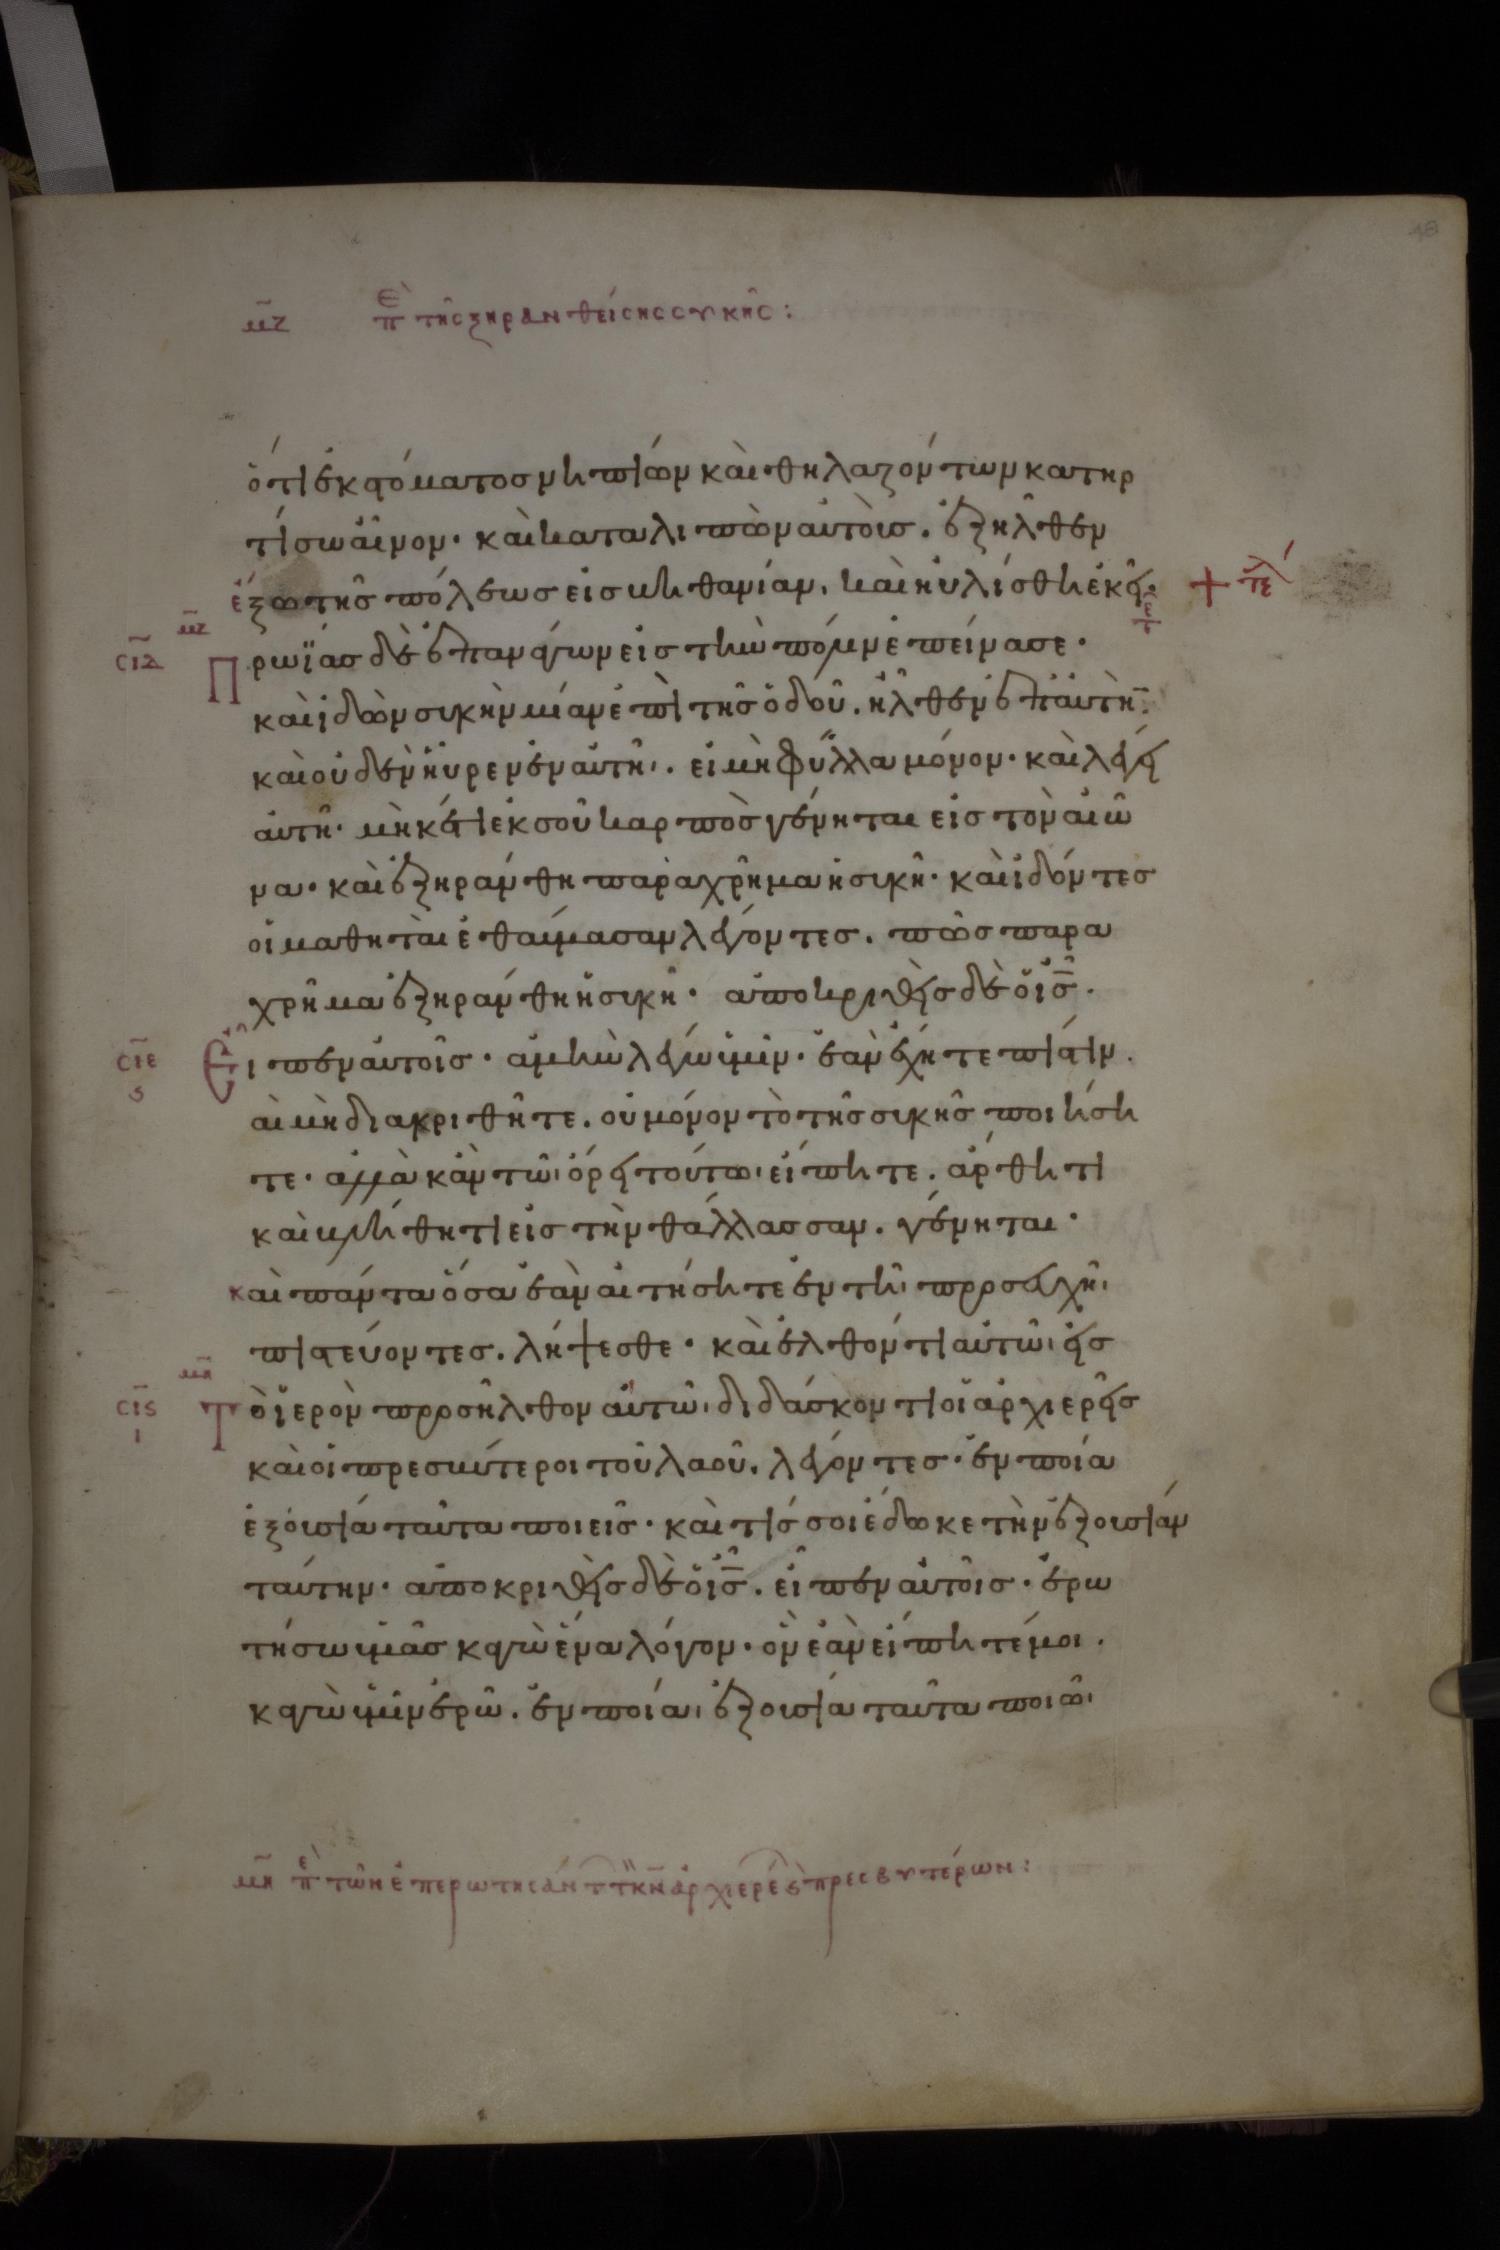 48
μ̄ζ ἐπὶ τῆς ξηρανθείσης συκῆς:
ὅτι ἐκ στόματος νηπίων καὶ θηλαζόντων κατηρ
τίσω αἶνον· καὶ καταλιπὼν αὐτοὺς. ἐξῆλθεν
ἔξω τῆς πόλεως εἰς βηθανίαν. καὶ ηὐλίσθη ἐκεῖ· + τε
μ̄ζ
σ̄ιδ Πρωΐας δὲ ἐπανάγων εἰς τὴν πόλιν ἐπείνασε·
καὶ ἰδὼν συκὴν μίαν ἐπὶ τῆς ὁδοῦ. ἦλθεν ἐπ' αὐτὴν·
καὶ οὐδὲν εὗρεν ἐν αὐτῆι. εἰ μὴ φύλλα μόνον· καὶ λέγει
αὐτῆ· μὴκέτι ἐκ σοῦ καρπὸς γένηται εἰς τὸν αἰῶ
να· καὶ ἐξηράνθη παραχρῆμα ἡ συκῆ· καὶ ἰδόντες
οἱ μαθηταὶ ἐθαύμασαν λέγοντες. πῶς παρα
χρῆμα ἐξηράνθη ἡ συκῆ· ἀποκριθεὶς δὲ ὁ ι̅ς̅.
σ̄ιε Εἶπεν αὐτοῖς· ἀμὴν λέγω ὑμῖν· ἐὰν ἔχητε πίστιν.
ς καὶ μὴ διακριθῆτε. οὐ μόνον τὸ τῆς συκῆς ποιήση
τε· ἀλλὰ κἂν τῶι ὄρει τούτωι εἴπητε. ἄρθητι
καὶ βλήθητι εἰς τὴν θάλλασσαν. γένηται·
και πάντα ὅσα ἐὰν αἰτήσητε ἐν τῆι προσευχῆι
πιστεύοντες. λήψεσθε· καὶ ἐλθόντι αὐτῶι εἰς
μ̄η
σ̄ις Τὸ ἱερὸν προσῆλθον αὐτῶι διδάσκοντι οἱ ἀρχιερεῖς
ι καὶ οἱ πρεσβύτεροι τοῦ λαοῦ. λέγοντες· ἐν ποία
ἐξουσία ταῦτα ποιεῖς· καὶ τίς σοι ἔδωκε τὴν ἐξουσίαν
ταύτην· ἀποκριθεὶς δὲ ὁ ι̅ς̅. εἶπεν αὐτοῖς· ἐρω
τήσω ὑμᾶς κἀγὼ ἕνα λόγον· ὃν ἐὰν εἴπητέ μοι.
κἀγὼ ὑμῖν ἐρῶ. ἐν ποίαι ἐξουσία ταῦτα ποιῶι
μ̄η ἐπὶ τῶν ἐπερωτησάντ τ κ̅ν̅ ἀρχιερέ πρεσβυτέρων: